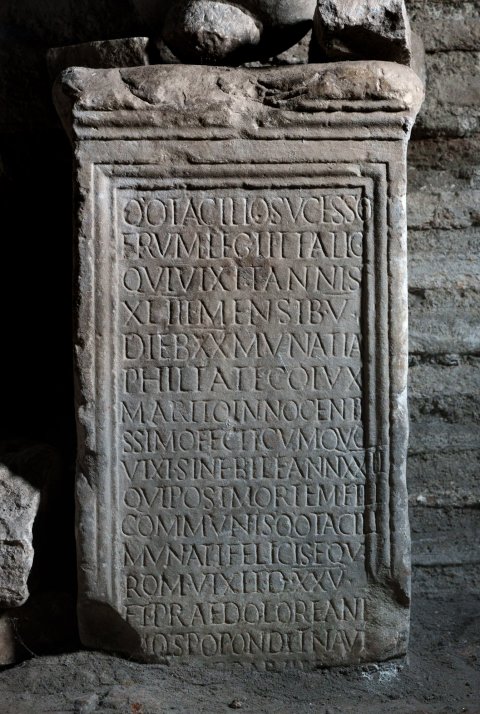 Q OTACILIO SVCESSO
FRVM LEG II ITALIC
QVI VIXIT ANNIS
XL III MENSIBV
DIEB XX MVNATIA
PHILTATE COIVX
MARITO INNOCENT
SSIMO FECTI CVM QVO
VIXI SINE BILE ANN XXII
QVI POST MORTEM FIL
COMMVNIS Q OTACIL
MVNATI FELICIS EQV
ROM VIXIT D XXV
ET PRAE DOLORE ANI
MOS POPONDIT NAVI